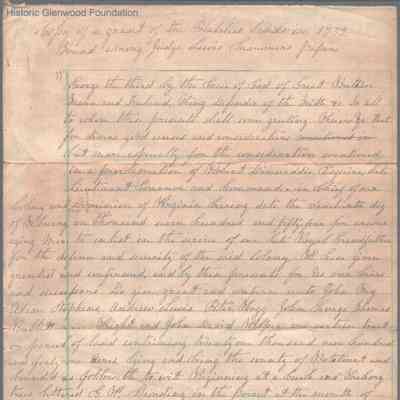 Historic Glenwood Foundation.
Copy of a grant of the Lands in 1772
Found among Judge Lewis Summers papers
George the third by the Grace of God of Great Britain
France and Ireland, King defender of the Faith &c To all
to whom these presents shall come greeting. Know ye that
for divers good causes and considerations mentioned in
but more especially for the consideration mentioned
in a proclamation of Robert Dinwiddie Esquire late
Lieutenant Governor and Commander in Chief of our
Colony and Dominion of Virginia bearing date the nineteenth day
of February one thousand seven hundred and fifty four for encour
aging Men to enlist in the service of our late Royal Grandfather
for the defence and security of the said Colony We have given
granted and confirmed, and by these presents for us our heirs
and successors Do give grant and confirm unto John Fry
Adam Stephens, Andrew Lewis Peter Hogg John Savage Thomas
Wright and John David Wilper one certain tract
or parcel of land containing
and forty acres lying and being the county of Botetourt and
bounded as followeth to wit Beginning at a and Hickory
trees lettered standing on the point at the mouth of